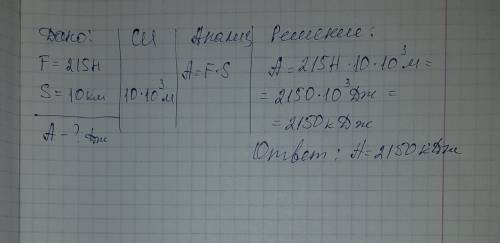 Дано: СИ Анализ Решение:
F = 215Н
S = 10км 10·10³м A = F·S A = 215Н·10·10³м =
= 2150·10³Дж =
= 2150кДж
A - ? Дж
Ответ: A = 2150кДж